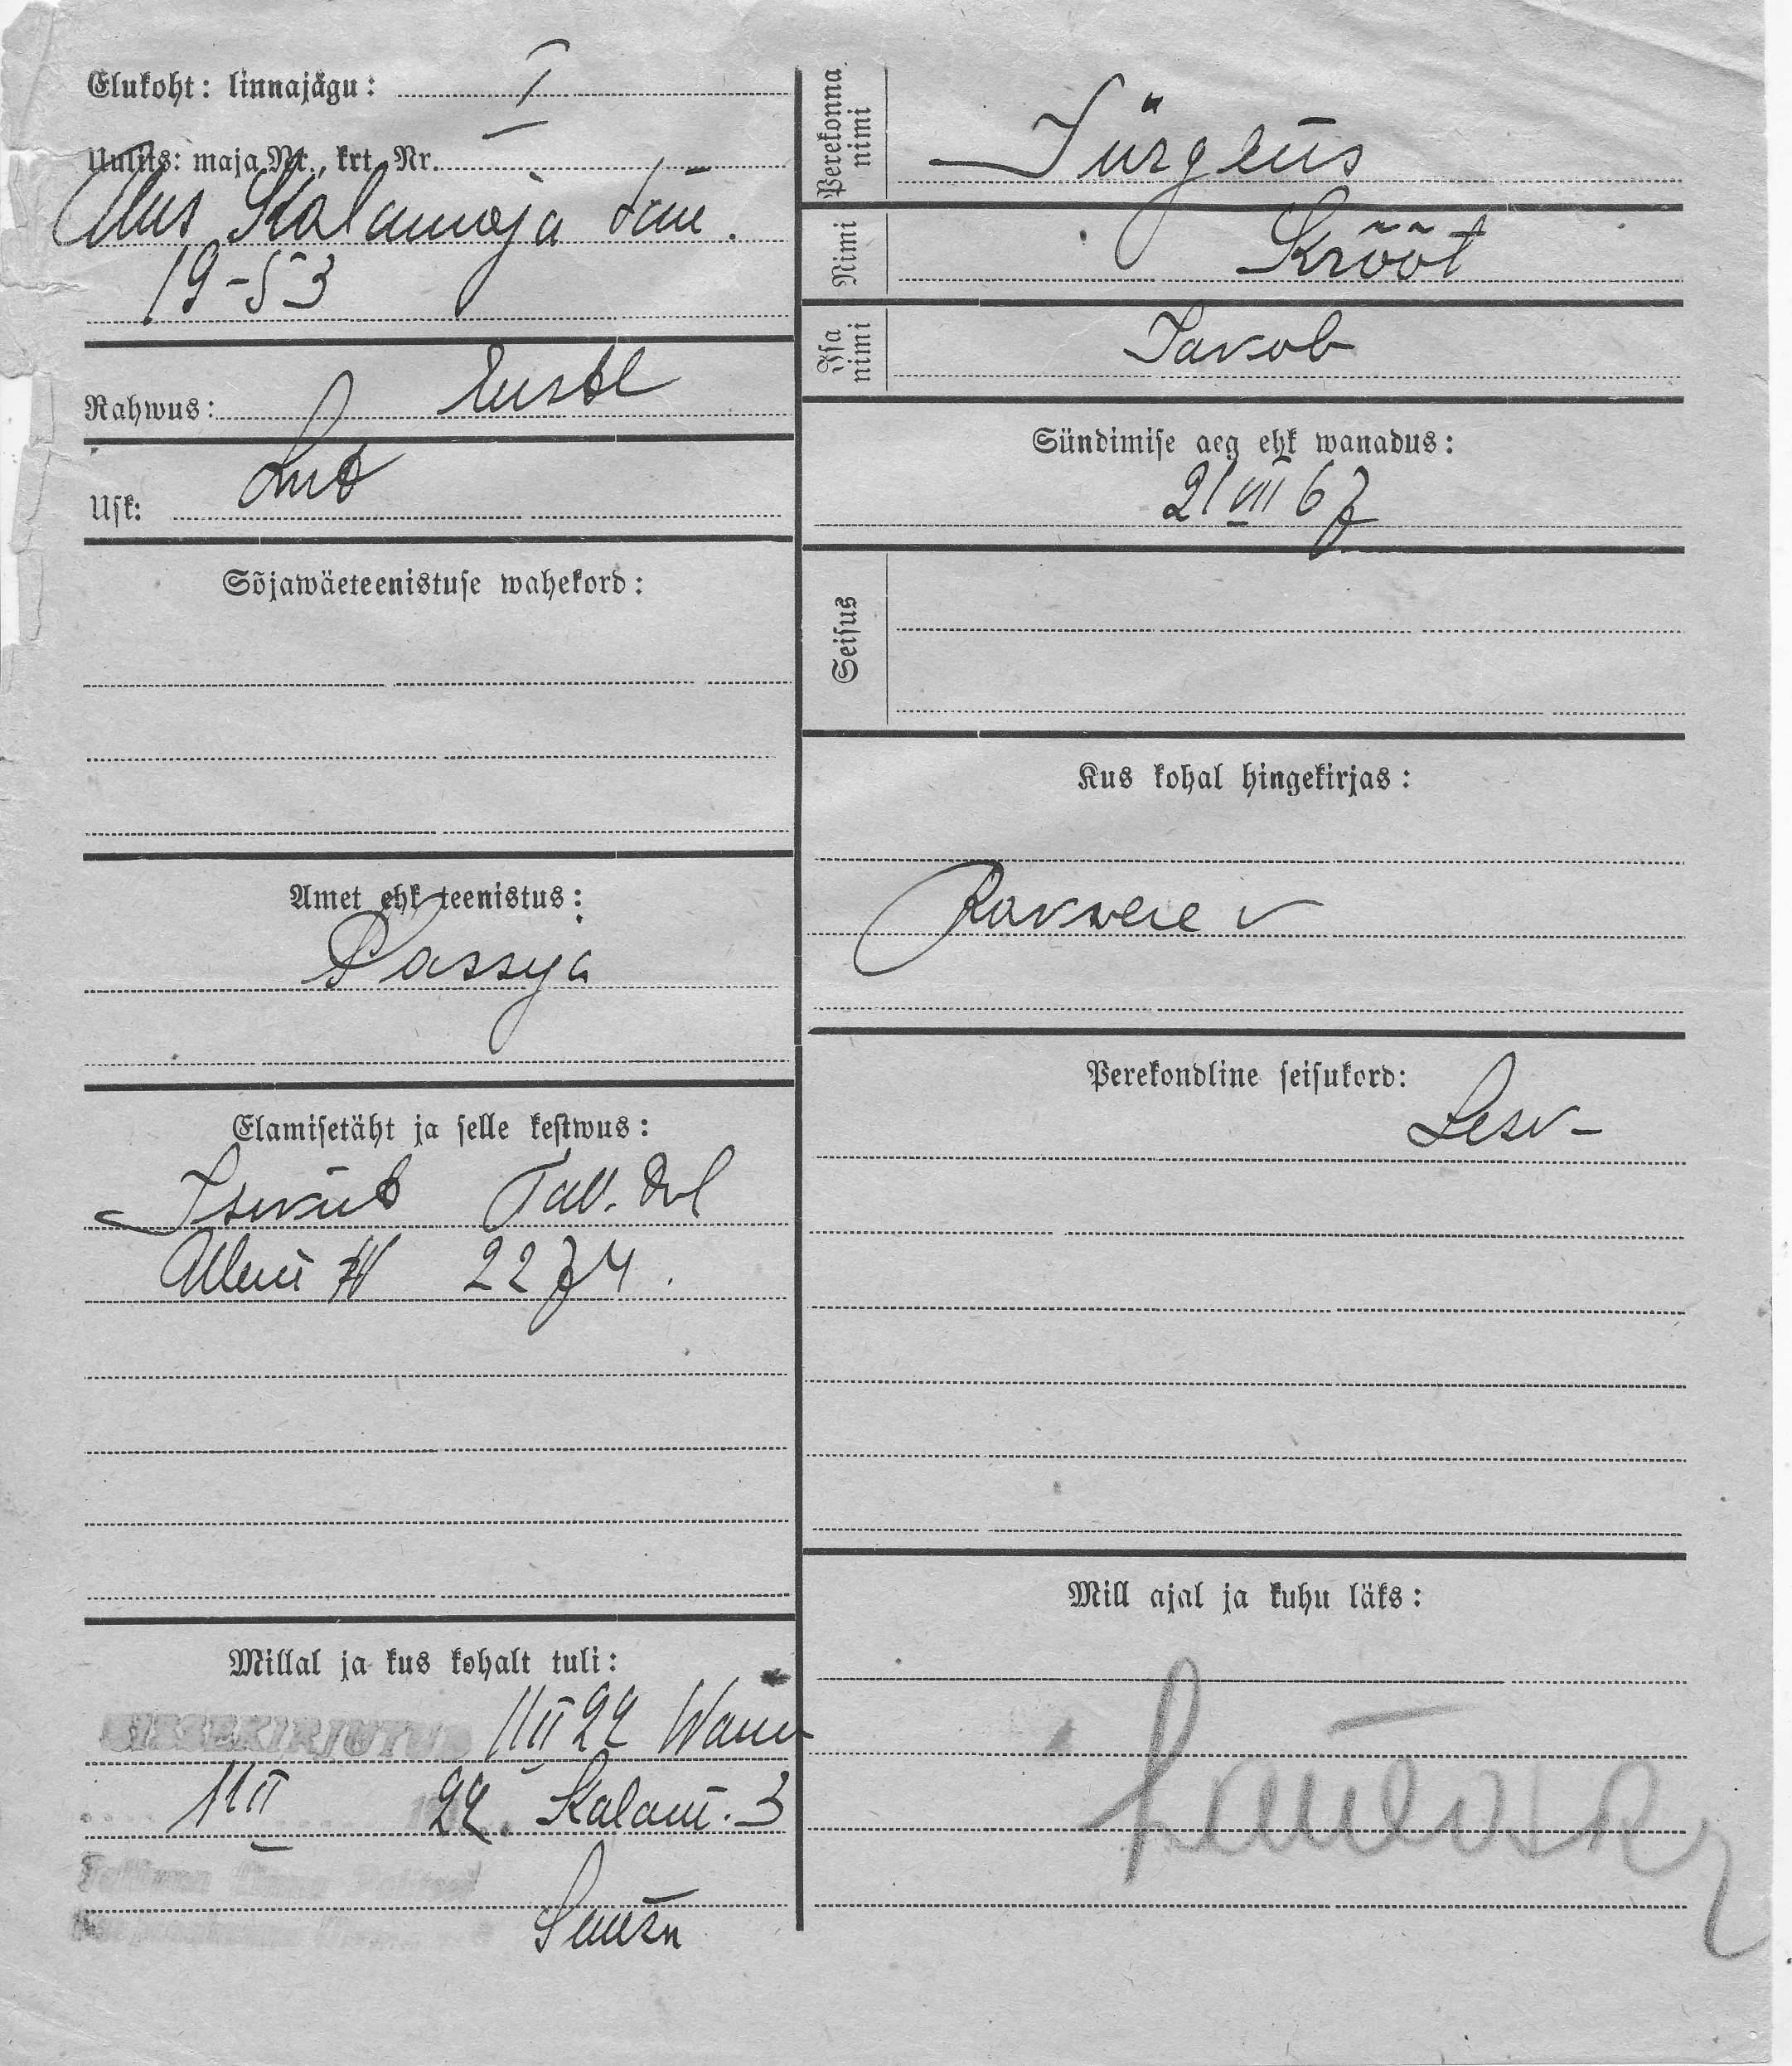 Elukoht: linnajagu: I
Uulits: maja Nr., krt. Nr.
Uus Kalamaja tän.
19-53
Rahwus: Eestl
Usk: Lut
Sõjawäeteenistuse wahekord:
Amet ehk teenistus:
Elamisetäht ja selle kestwus:
Isikut Tall. Jsk
2274.
Millal ja kus kohalt tuli:
SISSEKIRJUTUD 1 II 22 Wana
1 II 22. Kalam. 3
Tallinna Linna Politsei
Perekonna nimi
Jürgens
Nimi
Krõõt
Isa nimi
Jakob
Sündimise aeg ehk wanadus:
21 VII 67
Seisus
Kus kohal hingekirjas:
Rakwere v
Perekondline seisukord:
Lesk-
Mill ajal ja kuhu läks: